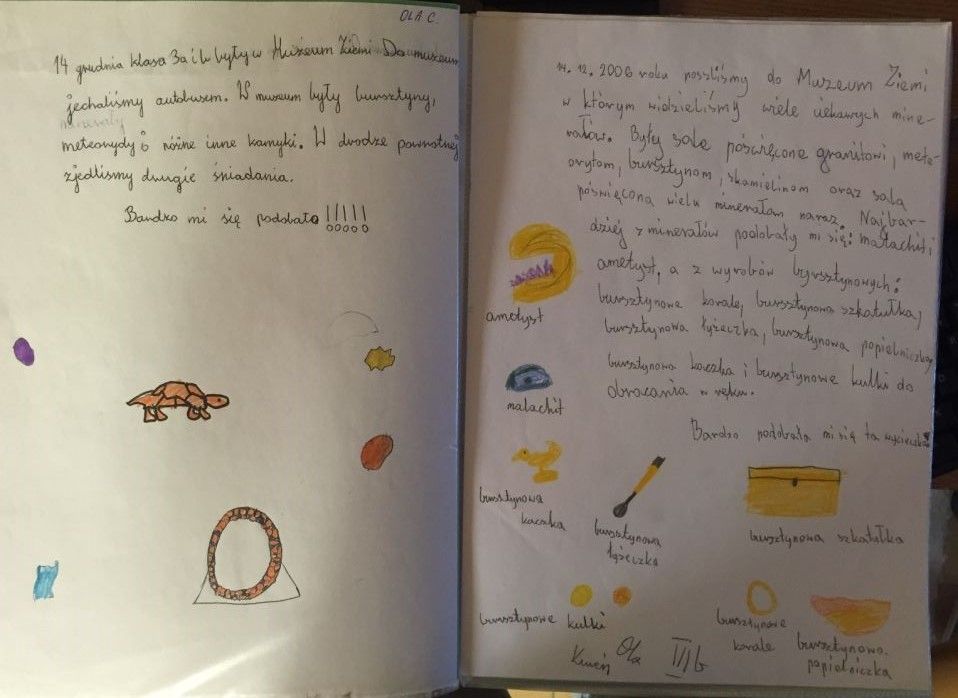 OLA C.
14 grudnia klasa 3a i b były w Muzeum Ziemi Do muzeum
jechaliśmy autobusem. W muzeum były bursztyny,
minerały
meteorydy i różne inne kamyki. W drodze powrotnej
zjedliśmy drugie śniadania.
Bardzo mi się podobało !!!!!
14.12.2006 roku poszliśmy do Muzeum Ziemi
w którym widzieliśmy wiele ciekawych mine-
rałów. Były sale poświęcone granitowi, mete-
orytom, bursztynom, skamielinom oraz sala
poświęcona wielu minerałom naraz. Najbar-
dziej z minerałów podobały mi się: malachit i
ametyst, a z wyrobów byrsztynowych:
bursztynowe korale, bursztynowa szkatułka,
bursztynowa łyżeczka, bursztynowa popielniczka,
bursztynowa kaczka i bursztynowe kulki do
obracania w ręku.
Bardzo podobała mi się ta wycieczka!
ametyst
malachit
bursztynowa
kaczka
bursztynowa
łyżeczka
bursztynowa szkatułka
bursztynowe kulki
bursztynowe
korale
bursztynowa
popielniczka
Ola IIIb